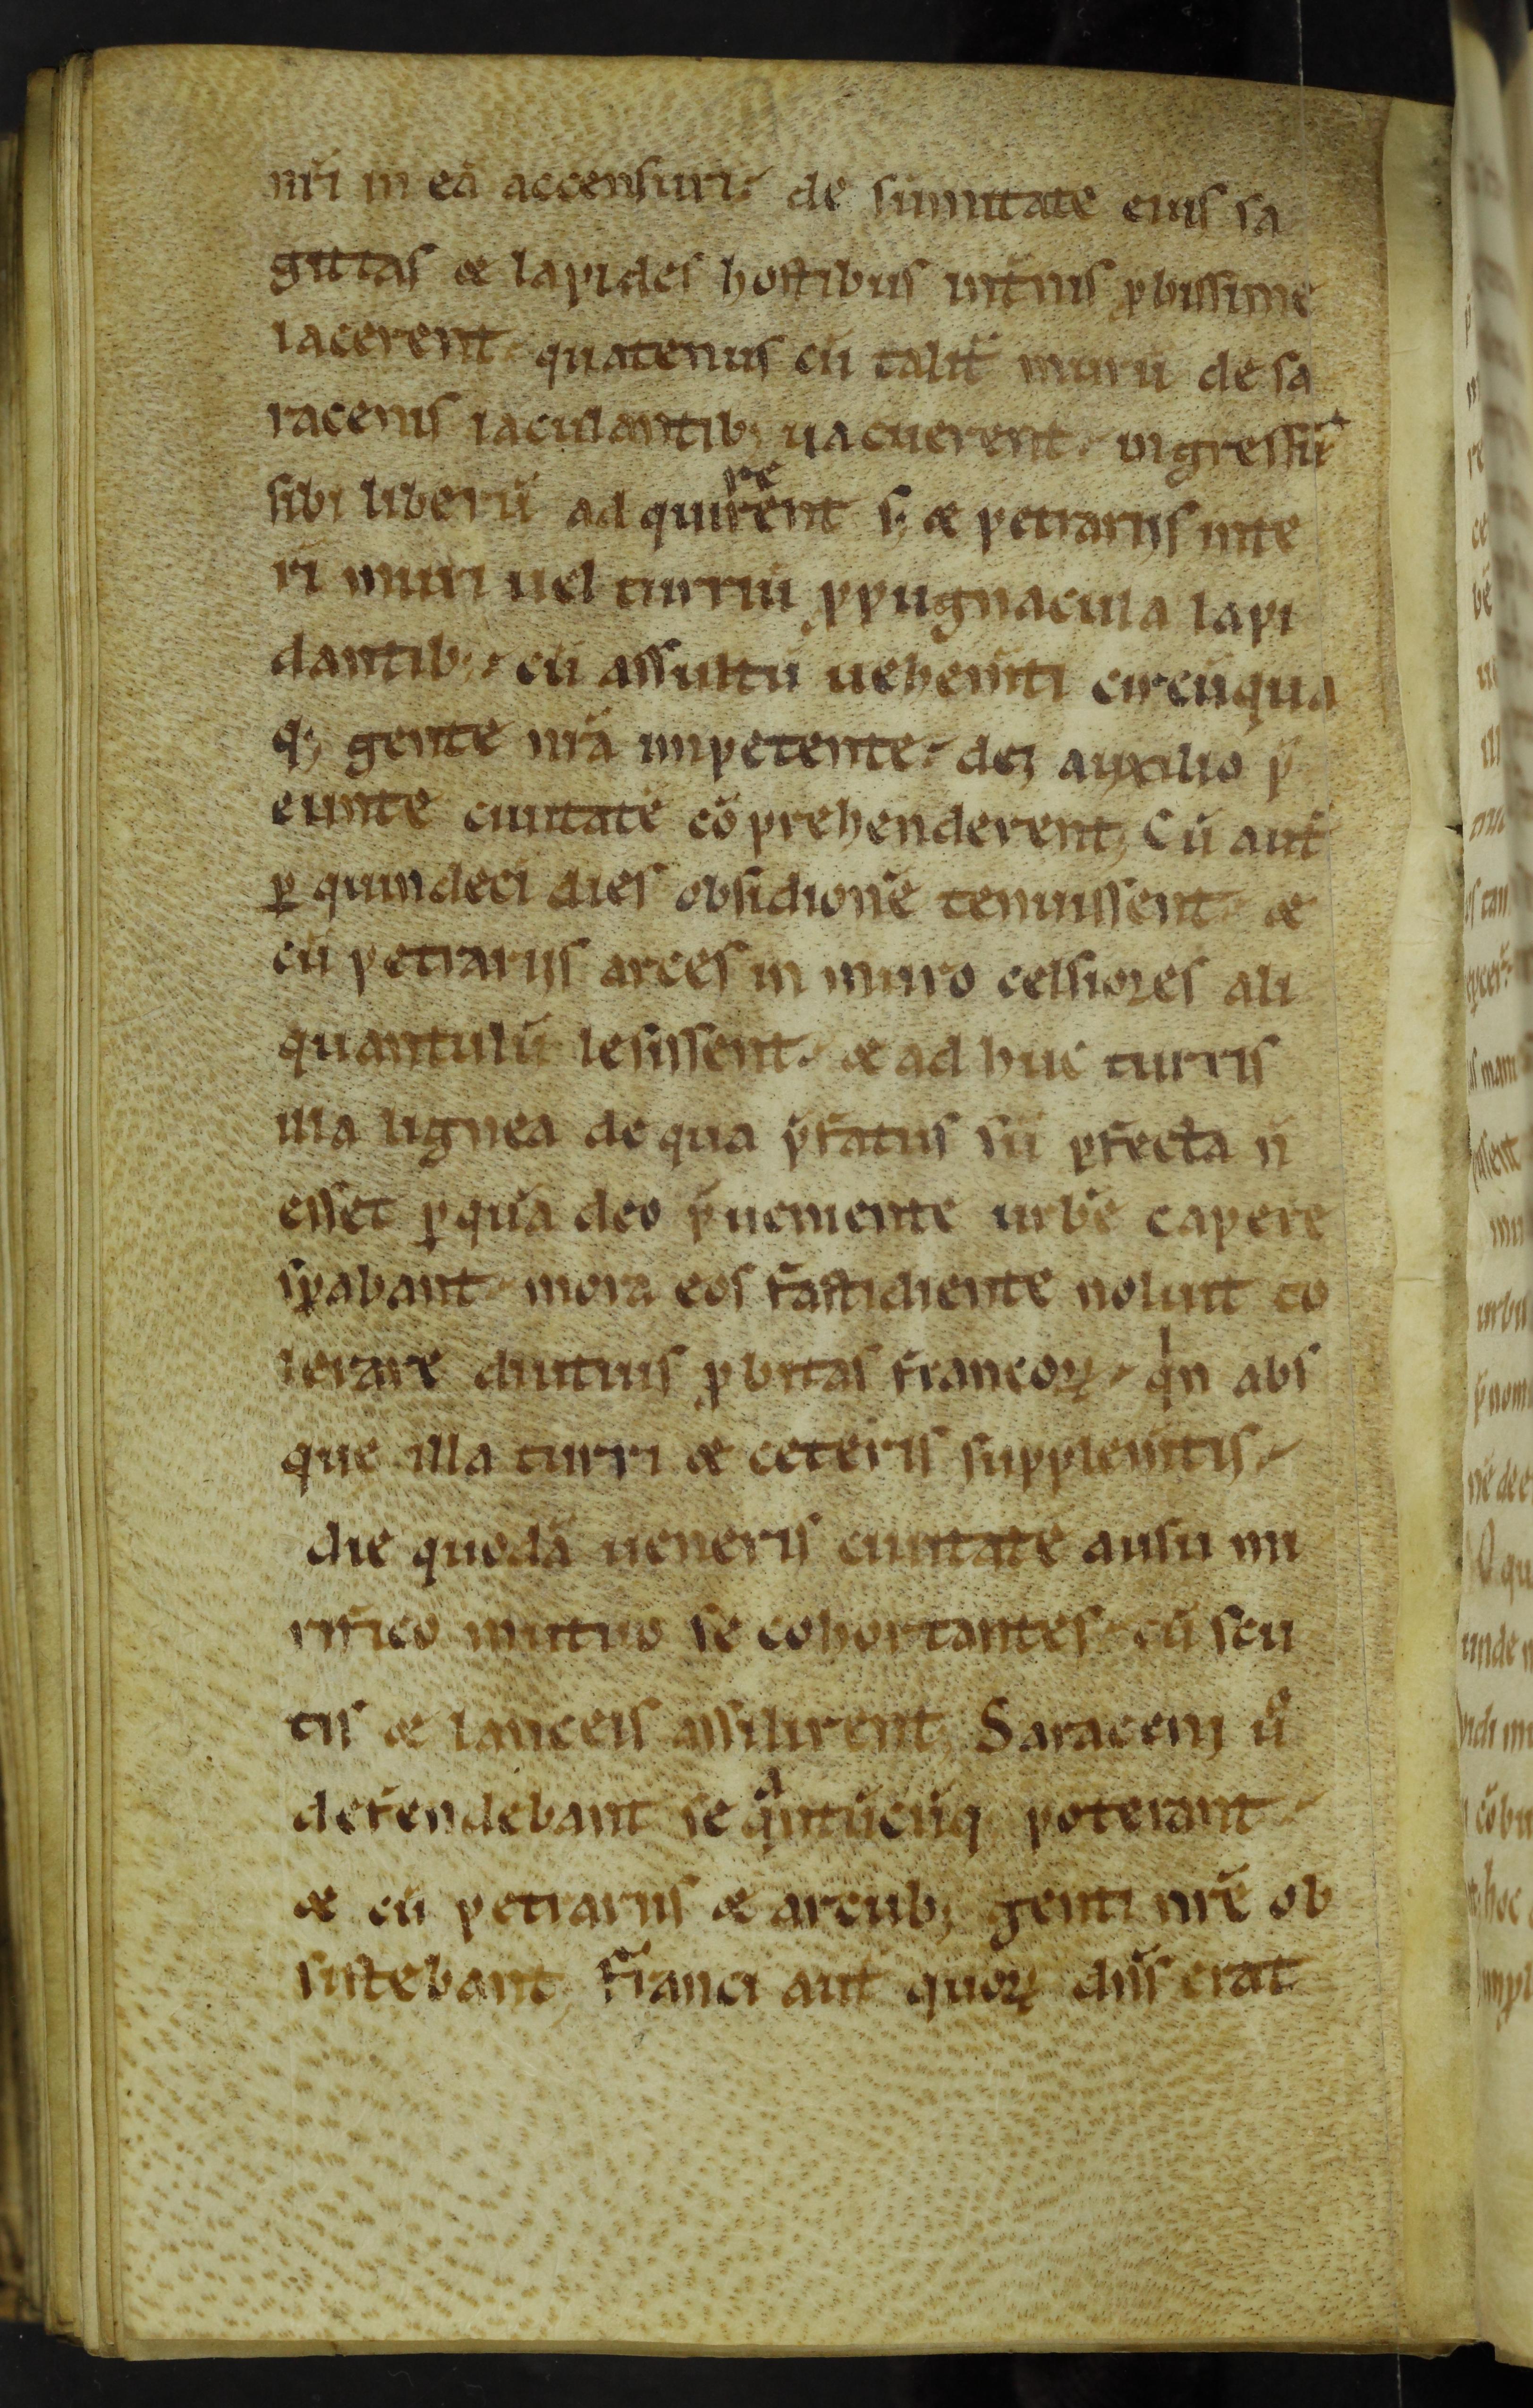 nr̄i in eā accensuri. de sūmitate eius sa
gittas & lapides hostibus int̄nis ꝓbissime
iacerent. quatenus cū talit̄ murū de sa
racenis iaculantib; uacuerent. ingressū
sibi liberū adquirerent s; & petrariis inte
ri muri uel turriū ꝓpugnacula lapi
dantib;. cū assultu uehem̄ti circūqua
q; gente nr̄a impetente. dei auxilio p̄
eunte ciuitatē cōprehenderent; Cū aut̄
ꝑ quindeci dies obsidionē tenuissent. &
cū petrariis arces in muro celsiores ali
quantulū lesissent. & ad huc turris
illa lignea de qua p̄fatus sū ꝑfecta n̄
esset ꝑ quā deo p̄ueniente urbē capere
sꝑabant. mora eos fastidiente noluit to
lerare diutius ꝓbitas francoꝝ. qin abs
que illa turri & ceteris supplem̄tis.
die quodā ueneris ciuitatē ausu mi
rifico mutuo se cohortantes. cū scu
tis & lanceis assilirent; Saraceni ū
defendebant se qantūcūq; poterant.
& cū petrariis & arcub; genti nr̄e ob
sistebant; Franci aut̄ quoꝝ dn̄s erat